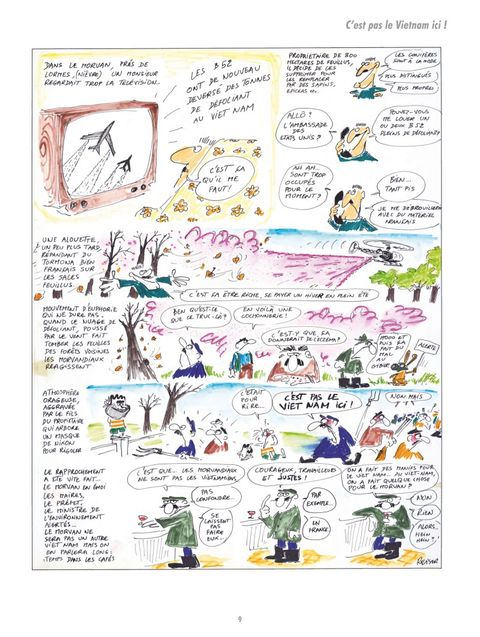 C'est pas le Vietnam ici !
DANS LE MORVAN, PRÉS DE
LORMES, (NIÈVRE) UN MONSIEUR
REGARDAIT TROP LA TÉLÉVISION..
LES B52
ONT DE NOUVEAU
DÉVERSÉ DES TONNES
DE DÉFOLIANT
AU VIET NAM
C'EST ÇA
QU'IL ME
FAUT!
PROPRIÉTAIRE DE 800
HECTARES DE FEUILLUS,
IL DÉCIDE DE LES
SUPPRIMER POUR
LES REMPLACER
PAR DES SAPINS,
EPICEAS ...
LES CONIFÈRES
SONT À LA MODE
PLUS DISTINGUÉS
PLUS PROPRES
ALLÔ ?
L'AMBASSADE
DES
ETATS UNIS ?
POUVEZ-VOUS
ME LOUER UN
OU DEUX B52
PLEINS DE DÉFOLIANT?
AH AH...
SONT TROP
OCCUPÉS
POUR LE
MOMENT ?
BIEN...
TANT PIS
JE ME DÉBROUILLERAI
AVEC DU MATÉRIEL
FRANÇAIS
UNE ALOUETTE,
UN PEU PLUS TARD
RÉPANDANT DU
TORMONA BIEN
FRANÇAIS SUR
LES SALES
FEUILLUS
C'EST ÇA ÊTRE RICHE, SE PAYER UN HIVER EN PLEIN ÉTÉ
MOUVEMENT D'EUPHORIE
QUI NE DURE PAS,
QUAND LE NUAGE DE
DÉFOLIANT, POUSSÉ
PAR LE VENT FAIT
TOMBER LES FEUILLES
DES FORÊTS VOISINES
LES MORVANDIAUX
RÉAGISSENT
BEN QU'EST-CE
QUE CE TRUC-LÀ?
EN VOILÀ UNE
COCHONNERIE!
EST-Y QUE ÇA
DONNERAIT DE L'ECZÉMA?
ET
PUIS ÇA
FAIT DU
MAL
AU
GIBIER
ALERTE!
ATMOSPHÈRE
ORAGEUSE,
AGGRAVÉE
PAR LE FILS
DU PROPRIÉTAIRE
QUI ARBORE
UN MASQUE
DE NIXON
POUR RIGOLER
C'ÉTAIT
POUR
RIRE...
C'EST PAS LE
VIET NAM ICI !
NON MAIS
!
LE RAPPROCHEMENT
A ÉTÉ VITE FAIT..
LE MORVAN EN ÉMOI
LES MAIRES,
LE PRÉFET,
LE MINISTRE DE
L'ENVIRONNEMENT
ALERTÉS..
LE MORVAN NE
SERA PAS UN AUTRE
VIET NAM MAIS ON
EN PARLERA LONG-
TEMPS DANS LES CAFÉS
C'EST QUE... LES MORVANDIAUX
NE SONT PAS LES VIETNAMIENS
PAS
CONFONDRE..
SE
LAISSENT
PAS
FAIRE
EUX...
COURAGEUX, TRAVAILLEURS
ET JUSTES !
PAR
EXEMPLE...
EN
FRANCE..
ON A FAIT DES MANIFS POUR
LE VIET NAM... AU VIET-NAM,
ONT FAIT QUELQUE CHOSE
POUR LE MORVAN ?
NON
RIEN
ALORS..
HEIN
HEIN ?
REISER
9